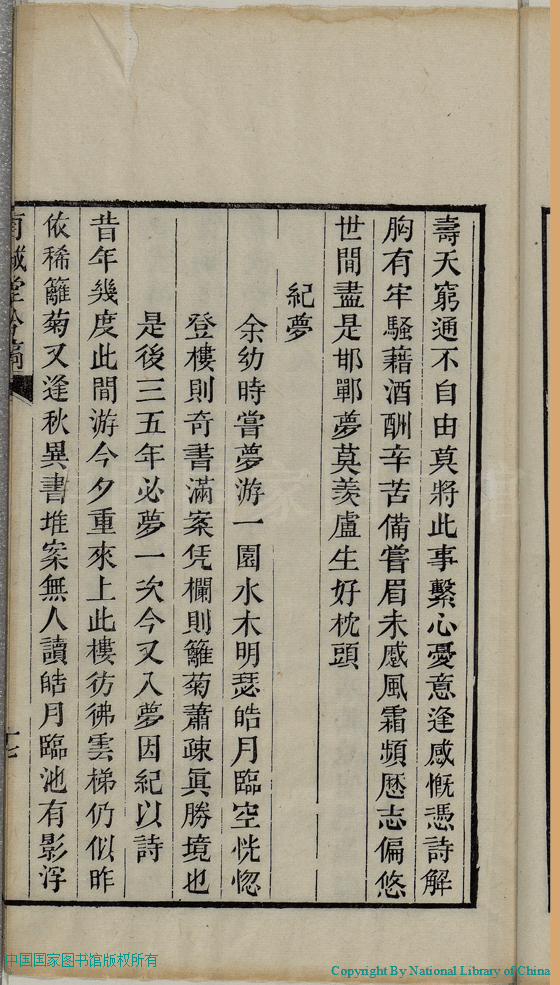 壽夭窮通不自由莫將此事繫心憂意逢感慨憑詩解
胸有牢騷藉酒酬辛苦備嘗眉未慼風霜頻歷志偏悠
世間盡是邯鄲夢莫羨盧生好枕頭
紀夢
余幼時嘗夢游一園水木明瑟皓月臨空恍惚
登樓則奇書滿案凭欄則籬菊蕭疎眞勝境也
是後三五年必夢一次今又入夢因紀以詩
昔年幾度此間游今夕重來上此樓彷彿雲梯仍似昨
依稀籬菊又逢秋異書堆案無人讀皓月臨池有影浮
十七
中国国家图书馆版权所有
Copyright By National Library of China